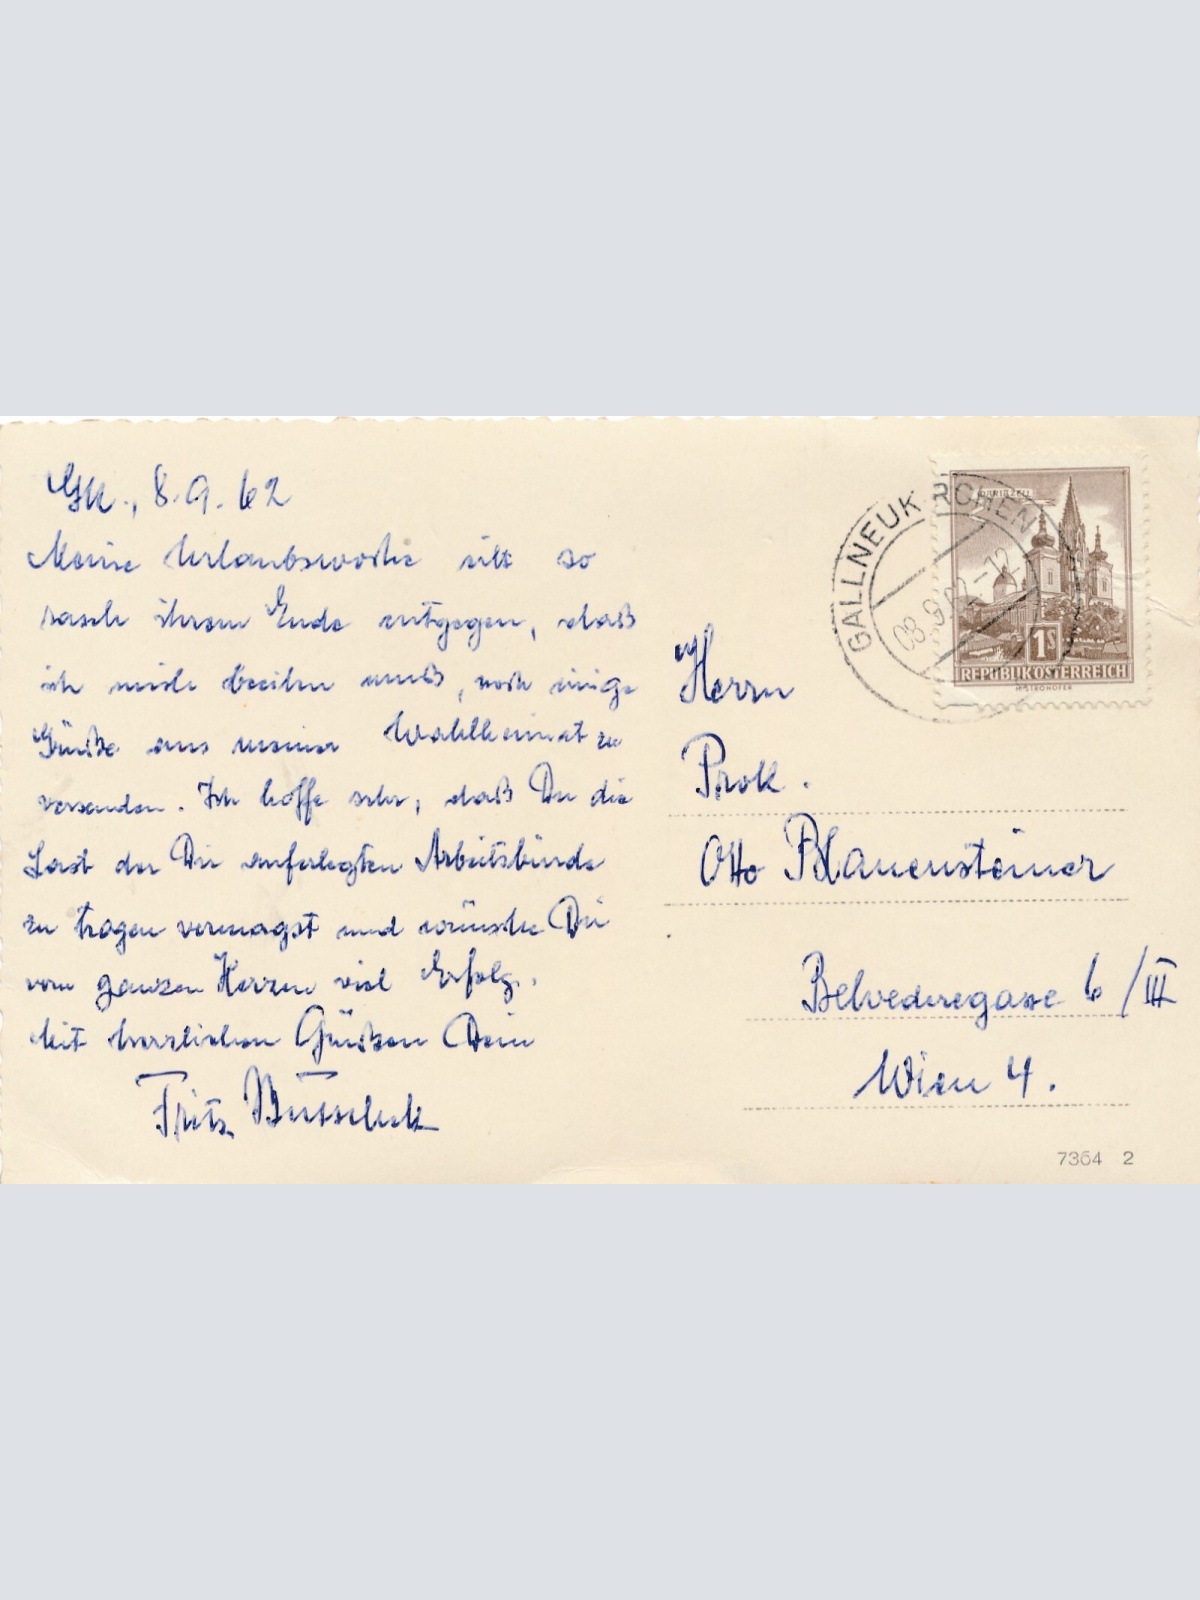 Gk., 8.9.62
Meine Urlaubswoche eilt so
rasch ihrem Ende entgegen, daß
ich mich beeilen muß, noch einige
Grüße aus meiner Wahlheimat zu
versenden. Ich hoffe sehr, daß Du die
Last der Dir auferlegten Arbeitsbürde
zu tragen vermagst und wünsche Dir
vom ganzen Herzen viel Erfolg.
Mit herzlichen Grüßen Dein
Fritz
GALLNEUKIRCHEN
MARIAZELL
1S
REPUBLIK ÖSTERREICH
Herrn
Prok.
Otto Blauensteiner
Belvederegasse 6/III
Wien 4.
7364 2